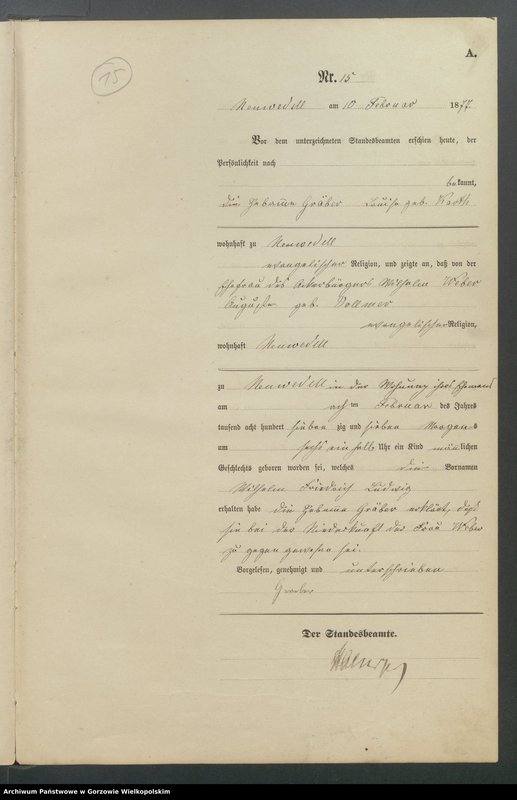 15
A.
Nr. 15
Neuwedell am 10 Februar 1877.
Vor dem unterzeichneten Standesbeamten erschien heute, der
Persönlichkeit nach
bekannt,
die Hebamme Gräber Louise geb.
wohnhaft zu Neuwedell
evangelischer Religion, und zeigte an, daß von der
Ehefrau des Ackerbürgers Wilhelm Weber
Auguste geb. Vollmer
evangelischer Religion,
wohnhaft Neuwedell
zu Neuwedell in der Wohnung ihres Ehemanns
am achten Februar des Jahres
tausend acht hundert siebenzig und sieben Morgens
um sechs ein halb Uhr ein Kind männlichen
Geschlechts geboren worden sei, welches die Vornamen
Wilhelm Friedrich Ludwig
erhalten habe die Hebamme Gräber erklärt, daß
sie bei der Niederkunft der Frau Weber
zu gegen gewesen sei.
Vorgelesen, genehmigt und unterschrieben
Der Standesbeamte.
Archiwum Państwowe w Gorzowie Wielkopolskim